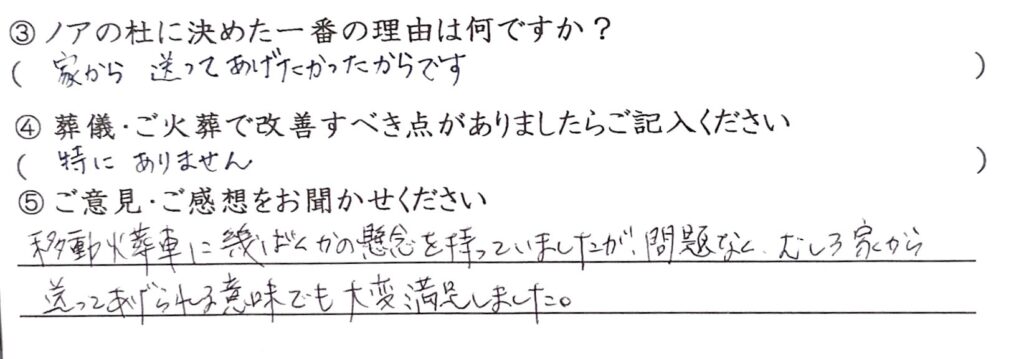 ③ ノアの杜に決めた一番の理由は何ですか？
( 家から 送ってあげたかったからです )
④ 葬儀・ご火葬で改善すべき点がありましたらご記入ください
( 特に ありません )
⑤ ご意見・ご感想をお聞かせください
移動火葬車に幾ばくかの懸念を持っていましたが、問題なく、むしろ家から
送ってあげられる意味でも大変満足しました。